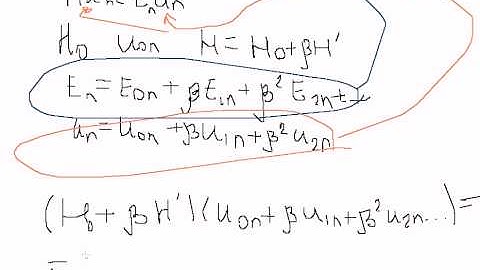 H u_n = E_n u_n
H_0 u_0n H = H_0 + βH'
E_n = E_0n + βE_1n + β² E_2n + 
u_n = u_0n + βu_1n + β² u_2n
(H_0 + βH')(u_0n + βu_1n + β² u_2n ...) =
E